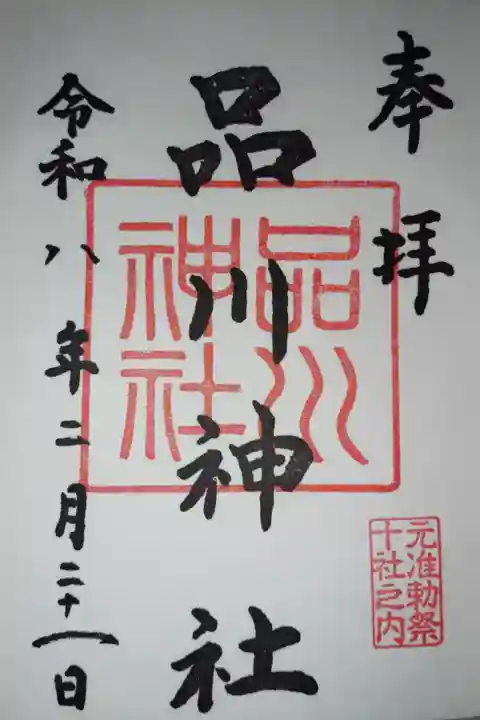 奉拝
品川神社
品川
神社
令和八年二月二十一日
元准勅祭
十社之内